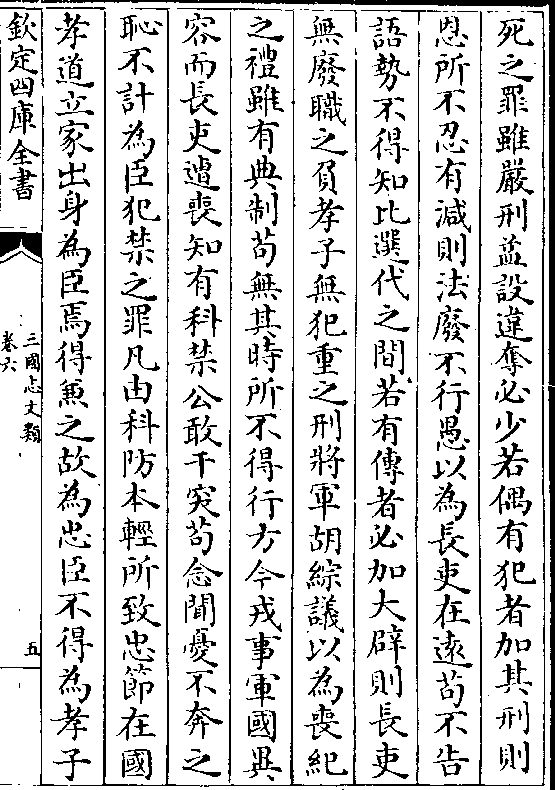 死之罪雖嚴刑益設違奪必少若偶有犯者加其刑則
恩所不忍有減則法廢不行愚以為長吏在逺茍不告
語勢不得知比選代之間若有傳者必加大辟則長吏
無廢職之負孝子無犯重之刑將軍胡綜議以為喪紀
之禮雖有典制茍無其時所不得行方今戎事軍國異
容而長吏遭喪知有科禁公敢干突茍念聞憂不奔之
恥不計為臣犯禁之罪凡由科防本輕所致忠節在國
孝道立家出身為臣焉得兼之故為忠臣不得為孝子
欽定四庫全書
三國志文類
卷六
五